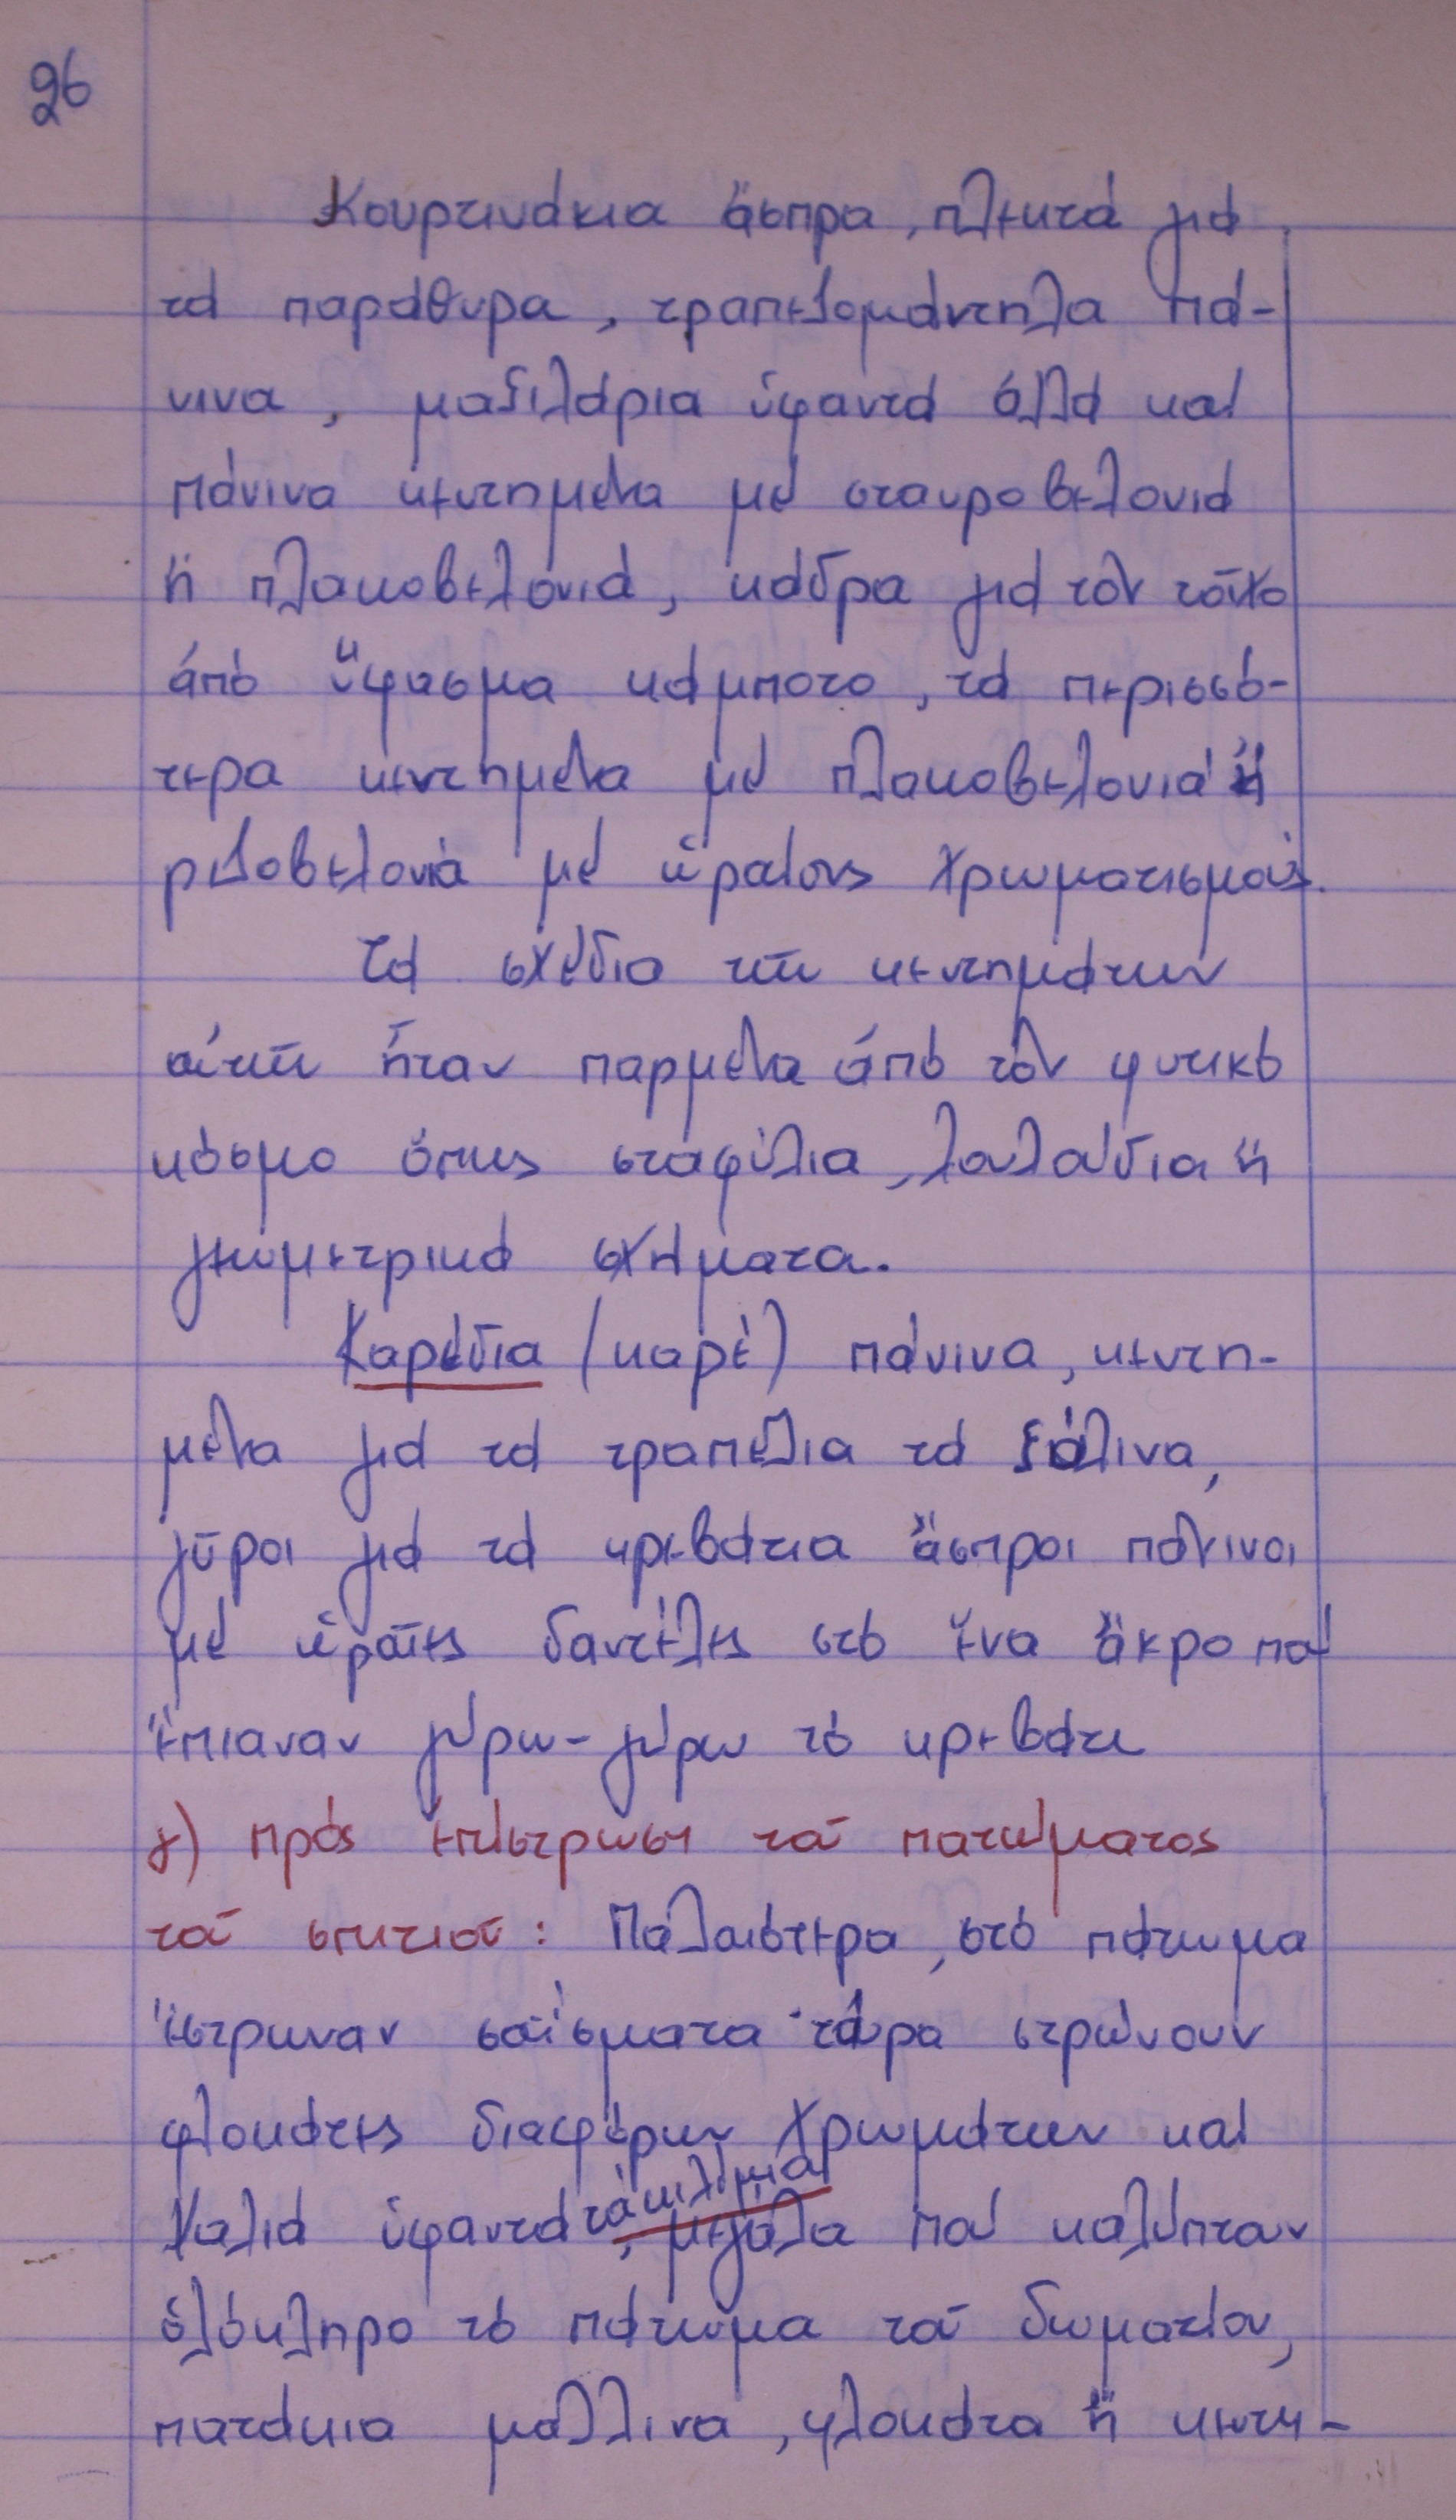 96
Κουρτινάκια ἄσπρα, πλεκτά γιά
τά παράθυρα, τραπεζομάντηλα πά-
νινα, μαξιλάρια ὑφαντά ἀλλά καί
πάνινα κεντημένα μέ σταυροβελονιά
ἤ πλακοβελονιά, κάδρα γιά τόν τοῖχο
ἀπό ὕφασμα κάμποτο, τά περισσό-
τερα κεντημένα μέ πλακοβελονιά ἤ
ριζοβελονιά μέ ὡραίους χρωματισμούς.
Τά σχέδια τῶν κεντημάτων
αὐτῶν ἦταν παρμένα ἀπό τόν φυτικό
κόσμο ὅπως σταφύλια, λουλούδια ἤ
γεωμετρικά σχήματα.
Καρέδια (καρέ) πάνινα, κεντη-
μένα γιά τά τραπέζια τά ξύλινα,
γῦροι γιά τά κρεβάτια ἄσπροι πάνινοι
μέ ὡραῖες δαντέλες στό ἕνα ἄκρο πού
ἔπιαναν γύρω-γύρω τό κρεβάτι
γ) πρός ἐπίστρωση τοῦ πατώματος
τοῦ σπιτιοῦ: Παλαιότερα, στό πάτωμα
ἔστρωναν σαΐσματα τώρα στρώνουν
φλοκάτες διαφόρων χρωμάτων καί
χαλιά ὑφαντά τά κιλίμια, μεγάλα πού καλύπταν
ὁλόκληρο τό πάτωμα τοῦ δωματίου,
πατάκια μάλλινα, φλοκάτα ἤ κεντη-